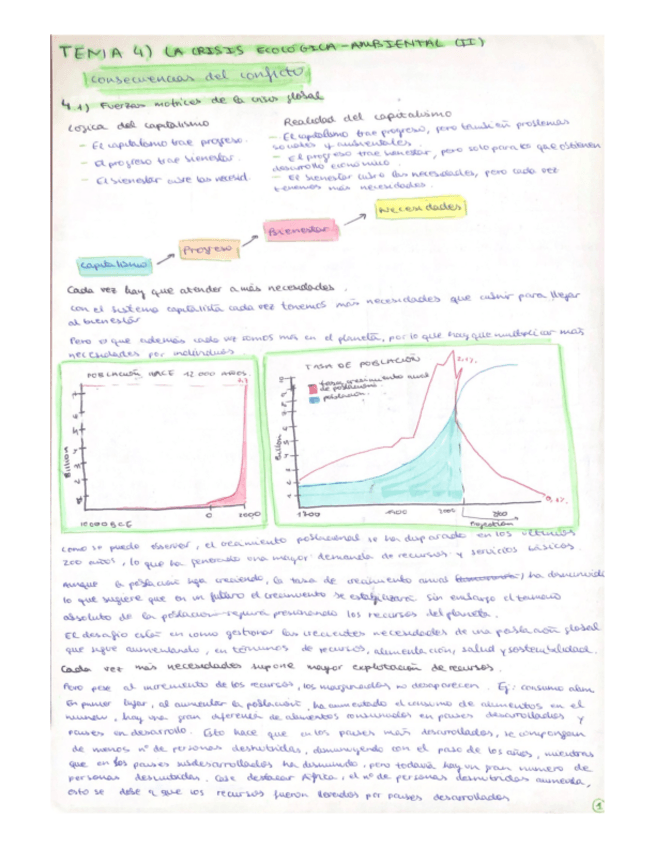 TEMA 4) LA CRISIS ECOLÓGICA-AMBIENTAL (II)
consecuencias del conflicto
4.1) Fuerzas motrices de la crisis global
Lógica del capitalismo
- El capitalismo trae progreso.
- El progreso trae bienestar.
- El bienestar cubre las necesid.
Realidad del capitalismo
- El capitalismo trae progreso, pero también problemas
sociales y ambientales.
- El progreso trae bienestar, pero solo para los que obtienen
desarrollo económico.
- El bienestar cubre las necesidades, pero cada vez
tenemos más necesidades.
Capitalismo
Progreso
Bienestar
Necesidades
Cada vez hay que atender a más necesidades.
Con el sistema capitalista cada vez tenemos más necesidades que cubrir para llegar
al bienestar
Pero es que además cada vez somos más en el planeta, por lo que hay que multiplicar más
necesidades por individuos
POBLACIÓN HACE 12 000 AÑOS.
Billion
10000 BCE
0
2000
TASA DE POBLACIÓN
tasa crecimiento anual
de población
población.
2.1%
Billion
1700
1900
2000
Projection
0,1%
Como se puede observar, el crecimiento poblacional se ha disparado en los últimos
200 años, lo que ha generado una mayor demanda de recursos y servicios básicos.
Aunque la población siga creciendo, la tasa de crecimiento anual ha disminuido
lo que sugiere que en un futuro el crecimiento se estabilizará. Sin embargo el tamaño
absoluto de la población seguirá presionando los recursos del planeta.
El desafío está en cómo gestionar las crecientes necesidades de una población global
que sigue aumentando, en términos de recursos, alimentación, salud y sostenibilidad.
Cada vez más necesidades supone mayor explotación de recursos.
Pero pese al incremento de los recursos, los marginados no desaparecen. Ej: consumo alim.
En primer lugar, al aumentar la población, ha aumentado el consumo de alimentos en el
mundo, hay una gran diferencia de alimentos consumidos en países desarrollados y
países en desarrollo. Esto hace que en los países más desarrollados, se compongan
de menos nº de personas desnutridas, disminuyendo con el paso de los años, mientras
que en los países subdesarrollados ha disminuido, pero todavía hay un gran número de
personas desnutridas. Cabe destacar África, el nº de personas desnutridas aumenta,
esto se debe a que los recursos fueron llevados por países desarrollados
1